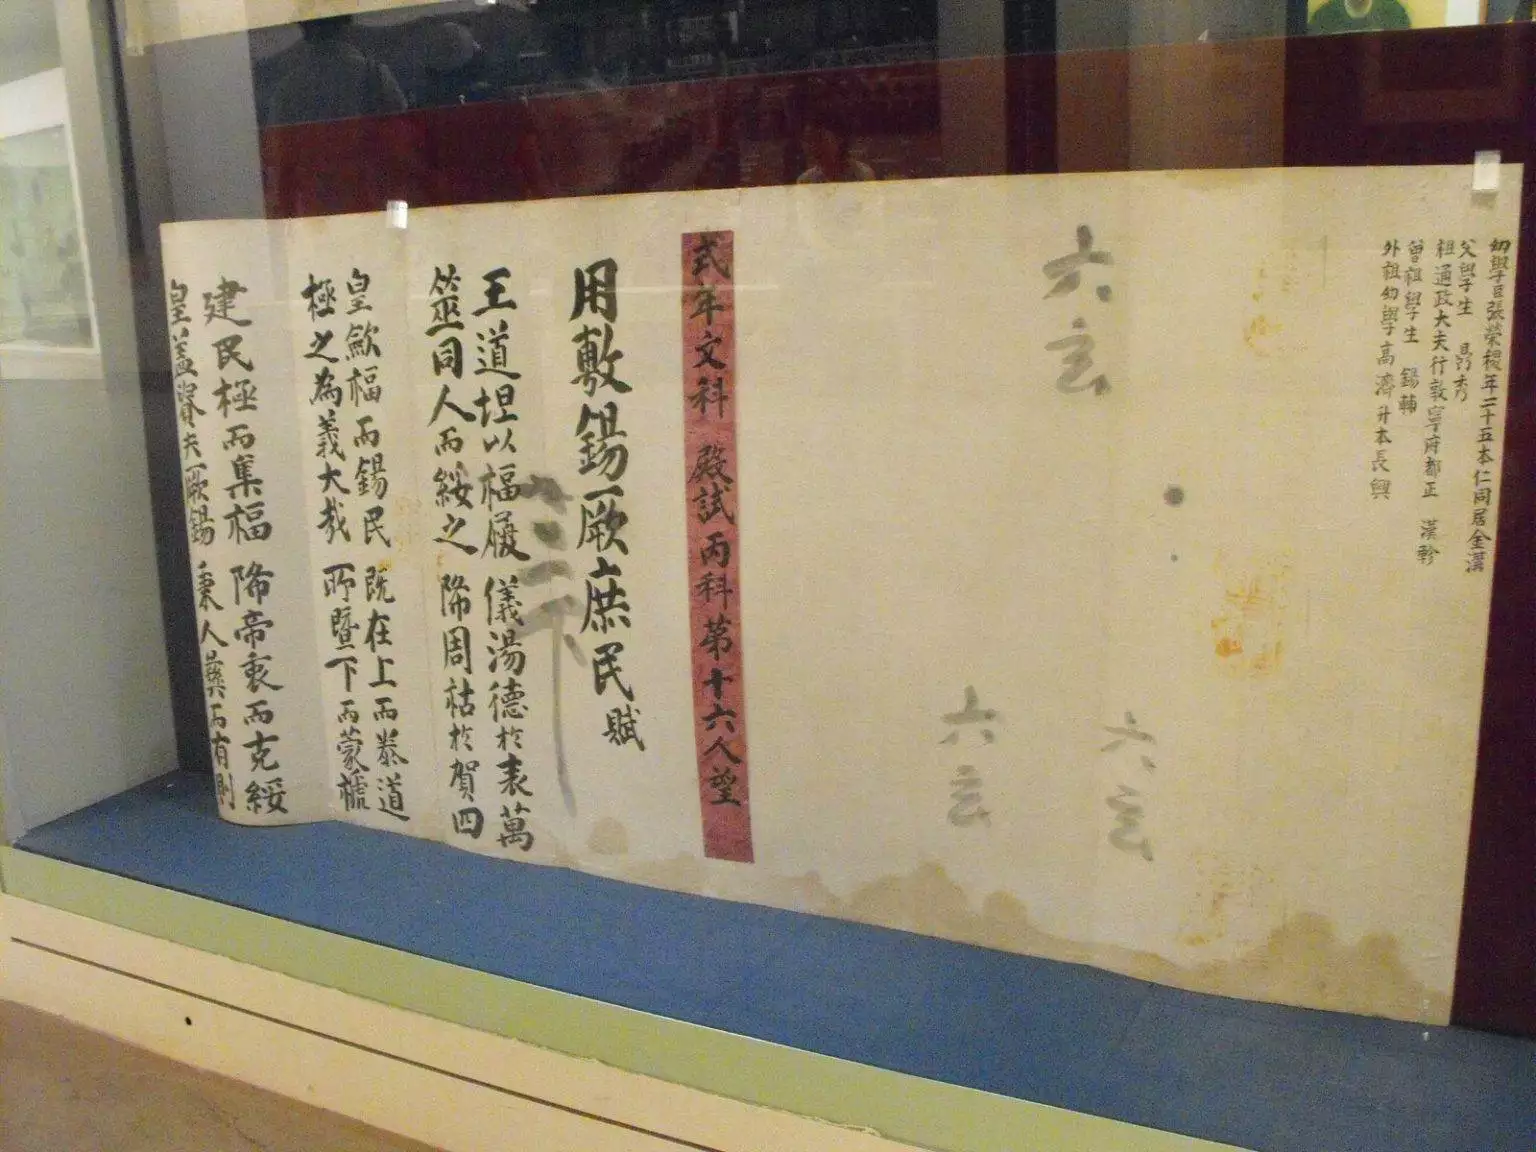 幼學臣張榮稷年二十五本仁同居金溝
父學生 昺秀
祖通政大夫行敦寧府都正 漢軫
曾祖學生 錫輔
外祖幼學高濟升本長興
六玄
六玄
六玄
式年文科 殿試丙科第十六人望
用敷錫厥庶民賦
二下
王道坦以福履 儀湯德於表萬
筮同人而綏之 隮周祜於賀四
皇歛福而錫民 既在上而泰道
極之為義大哉 所暨下而蒙槱
建民極而集福 隮帝衷而克綏
皇蓋賚夫厥錫 秉人彝而有則